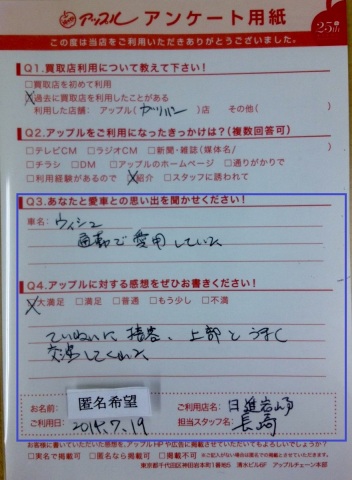 アップル アンケート用紙 25th
この度は当店をご利用いただきありがとうございました。
Q1.買取店利用について教えて下さい!
□買取店を初めて利用
□過去に買取店を利用したことがある
利用した店舗: アップル( ガリバー )店 その他( )
Q2.アップルをご利用になったきっかけは?(複数回答可)
□テレビCM □ラジオCM □新聞・雑誌(媒体名/ )
□チラシ □DM □アップルのホームページ □通りがかりで
□利用経験があるので □紹介 □スタッフに誘われて
Q3.あなたと愛車との思い出を聞かせください!
車名: ウィッシュ
通勤で愛用していた
Q4.アップルに対する感想をぜひお書きください!
□大満足 □満足 □普通 □もう少し □不満
ていねいに接客、上部とうまく
交渉してくれた
お名前: 匿名希望 ご利用店名: 日進
ご利用日: 2015.7.19 担当スタッフ名: 長崎
お客様に書いていただいた感想を、アップルHPや広告に掲載させていただいてもよろしいでしょうか?
□実名で掲載可 □匿名なら掲載可 □掲載不可
東京都千代田区神田岩本町1番地5 清水ビル6F アップルチェーン本部